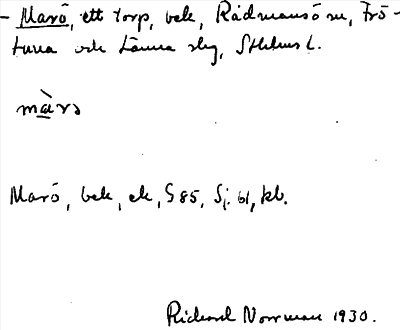 - Marö, ett torp, bek, Rådmansö sn, Frö-
tuna och Länna slg, Sthlms l.
màrə
Marö, bek, ek, S 85, Sj. 61, kb.
Rickard Norrman 1930.